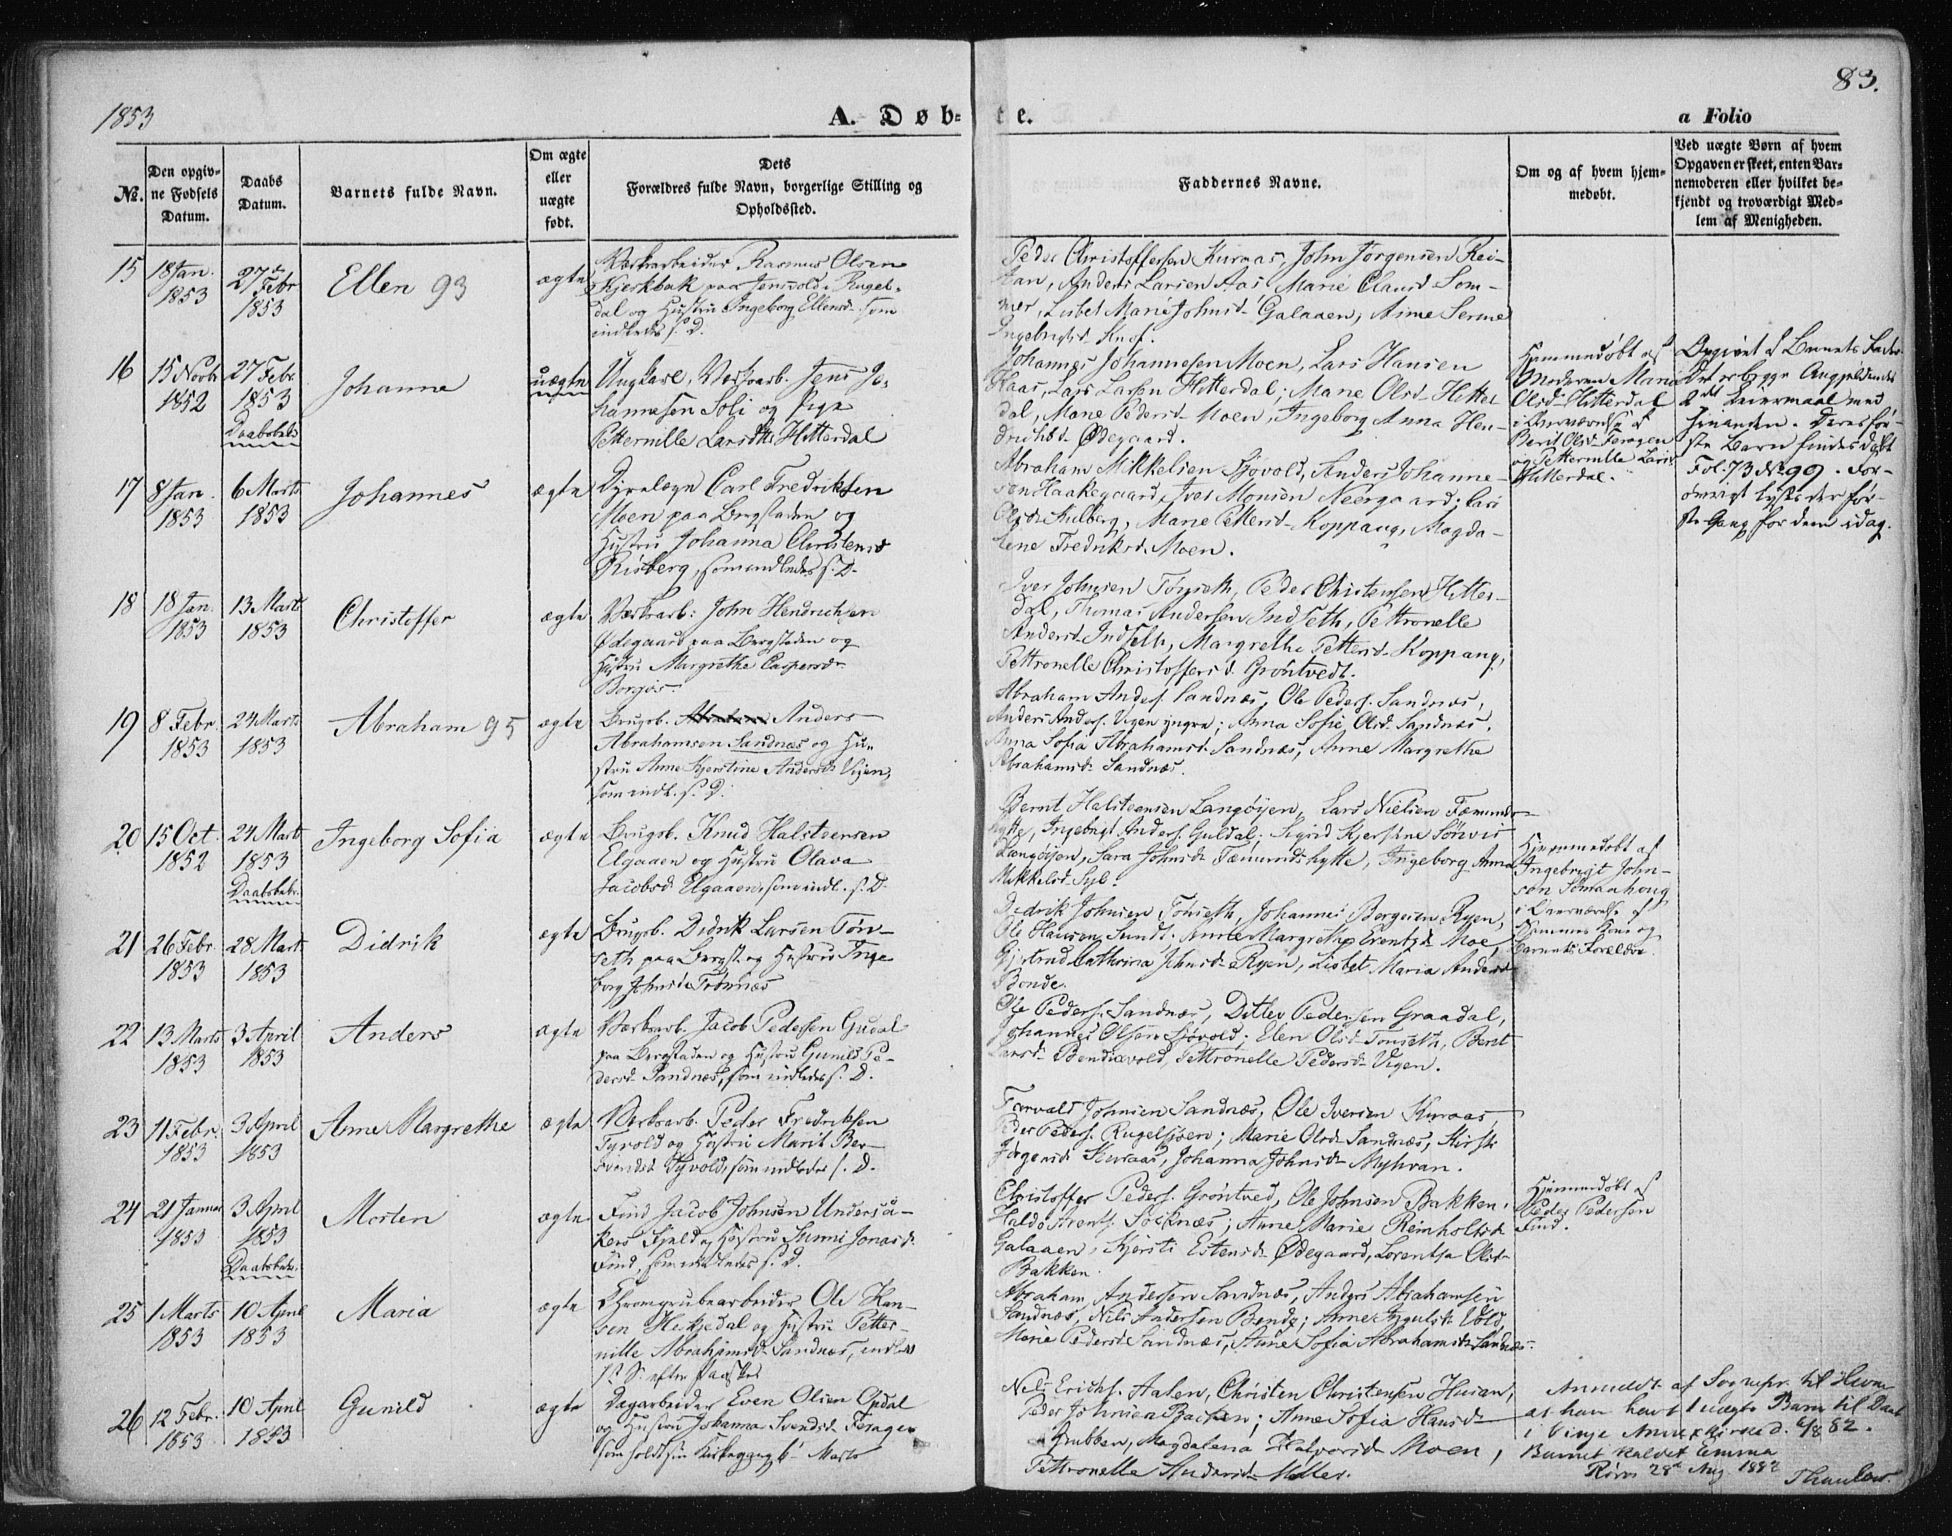 1853
A. Døb-
te.
83.
a Folio
№.
Den opgiv-
ne Fødsels
Datum.
Daabs
Datum.
Barnets fulde Navn.
Om ægte
eller
uægte
født.
Dets
Forældres fulde Navn, borgerlige Stilling og
Opholdssted.
Faddernes Navne.
Om og af hvem hjem-
medøbt.
Ved uægte Børn af hvem
Opgaven er skeet, enten Bar-
nemoderen eller hvilket be-
kjendt og troværdigt Med-
lem af Menigheden.
15
18 Jan.
1853
27de
Febr
1853
Ellen 93
ægte
Værkarbeider Rasmus Olsen
Kjerkbak paa Jensvold i Rugel-
dal og Hustru Ingeborg Ellensd. som
indledes s. D.
Peder Christoffersen Kuraas, John Jørgensen Rei-
tan, Anders Larsen Aas, Marie Clausd. Som-
mer, Lisbet Marie Johnsd. Galaaen, Anne Serine
Ingebrigtsd.
16
15 Novbr
1852
27 Febr.
1853
Daabsbekr.
Johanne
uægte
Ungkarl, Værksarb. Jens Jo-
hannesen Soli og Pige
Petternille Larsdtr Hitterdal
Johannes Johannesen Moen, Lars Hansen
Haas, Lars Larsen Hitterdal; Marie Olsd. Hitter-
dal, Marie Pedersd. Moen, Ingeborg Anna Hen-
drichsd. Ødegaard.
Hjemmedøbt af
Moderen Maria
Olsd. Hitterdal
i Overværelse af
Berit Olsd. Feragen
og Petternille Larsd.
Hitterdal.
Opgivet af Barnets Fader.
Det er begge Angjeldendes
2det Leiermaal med
hinanden. Deres før-
ste Barn findes døbt
Fol. 73 No 99. For-
øvrigt lystes der før-
ste Gang for dem idag.
17
8 Jan.
1853
6 Marts
1853
Johannes
ægte
Dyrelæge Carl Fredriksen
Moen paa Bergstaden og
Hustru Johanna Christensd
Risberg, som indledes s. D.
Abraham Mikkelsen Sjøvold, Anders Johanne-
sen Haakegaard, Iver Monsen Neergaard;
Olsd. Aulberg, Marie Pettersd. Koppang, Magda-
lene Fredriksd. Moen.
18
18 Jan.
1853
13 Marts
1853
Christoffer
ægte
Værksarb. John Hendrichsen
Ødegaard paa Bergstaden og
Hustru Margrethe Caspersd.
Borgos.
Iver Johnsen Tønseth, Peder Christensen Hitter-
dal, Thomas Andersen Indseth, Pettronelle
Andersd. Indseth, Margrethe Pettersd. Koppang,
Pettronelle Christoffersd. Grøntvedt.
19
8 Febr.
1853
24 Marts
1853
Abraham 95
ægte
Brugsb. Anders
Abrahamsen Sandnæs og Hu-
stru Anne Kjerstine Andersd. Vigen,
som indl. s. D.
Abraham Anders. Sandnæs, Ole Peders. Sandnæs,
Anders Anders. Vigen yngre; Anna Sofie Olsd. Sandnæs,
Anna Sofia Abrahamsd. Sandnæs, Anne Margrethe
Abrahamsd. Sandnæs.
20
15 Oct.
1852
24 Marts
1853
Daabsbekr.
Ingeborg Sofia
ægte
Brugsb. Knud Halsteensen
Elgaaen og Hustru Olava
Jacobsd. Elgaaen, som indl. s. D.
Bernt Halsteensen Langøijen, Lars Nielsen Fæmunds-
hytte, Ingebrigt Anders. Guldal. Sigrid Kjerstine Sørsvis
Langøijen, Sara Johnsd. Fæmundshytte, Ingeborg Anna
Mikkelsd. Syl.
Hjemmedøbt af
Ingebrigt John-
sen Sømaahoug
i Overværelse af
Sammes Kone og
Barnets Forældre.
21
26 Febr.
1853
28 Marts
1853
Didrik
ægte
Brugsb. Didrik Larsen Tøn-
seth paa Bergst. og Hustru Inge-
borg Johnsd. Trønnæs
Didrik Johnsen Tønseth, Johannes Bergersen Ryen,
Ole Hansen Sundt. Anne Margrethe Evensd. Moe,
Gjertrud Cathrina Johnsd. Ryen, Lisbet Maria Andersd
Bonde.
22
13 Marts
1853
3 April
1853
Anders
ægte
Værksarb. Jacob Pedersen Gudal
paa Bergstaden og Hustru Gunild Pe-
dersd. Sandnæs, som indledes s. D.
Ole Peders. Sandnæs, Ditlev Pedersen Graadal,
Johannes Olsen Sjøvold; Elen Olsd. Tønseth, Berit
Larsd. Bendixvold, Pettronelle Pedersd. Vigen.
23
11 Febr.
1853
3 April
1853
Anne Margrethe
ægte
Værksarb. Peder Fredriksen
Tyvold og Hustru Marit Ber-
svendsd. Tyvold, som indledes s. D.
Torvald Johnsen Sandnæs, Ole Iversen Kuraas,
Peder Peders. Rugelsjøen; Marie Olsd. Sandnæs, Kirsti
Jørgensd. Kuraas, Johanna Johnsd. Myhran.
24
21 Januar
1853
3 April
1853
Daabsbekr.
Morten
ægte
Find Jacob Johnsen Undersa-
kers Fjeld og Hustru Sunni Jonasd.
Find, som indledes s. D.
Christoffer Peders. Grøntved, Ole Johnsen Bakken.
Haldo Arents. Sørknæs; Anne Marie Reinholtsd.
Galaaen, Kjersti Estensd. Ødegaard, Lorentsa Olsd.
Bakken.
Hjemmedøbt af
Peder Pedersen
Find.
25
1 Marts
1853
10 April
1853
Maria
ægte
Chromgrubearbeider Ole Han-
sen Hekjedal og Hustru Petter-
nille Abrahamsd. Sandnæs, indled.
1st S. efter Paaske
Abraham Andersen Sandnæs, Anders Abrahamsen
Sandnæs, Nils Andersen Bonde; Anne Ingulsd. Vold,
Marie Pedersd. Sandnæs, Anne Sofia Abrahamsd. Sandnæs.
26
12 Febr.
1853
10 April
1853
Gunild
ægte
Dagarbeider Even Olsen Opdal
og Hustru Johanna Svendsd. Feragen
som holdt sin Kirkegang 6te Marts
Nils Erichs. Aalen, Christen Christensen Husan,
Peder Johnsen Bakken; Anne Sofia Hansd.
Grubben, Magdalena Halvorsd. Moen,
Pettronelle Andersd. Møller.
Anmeldt af Sognepr. til Hevne
at han havt 1 uægte Barn til Daab
i Vinje Annexkirke d. 6/8 82.
Barnet kaldet Emma
Røros 28de Aug 1882
Thaulow.